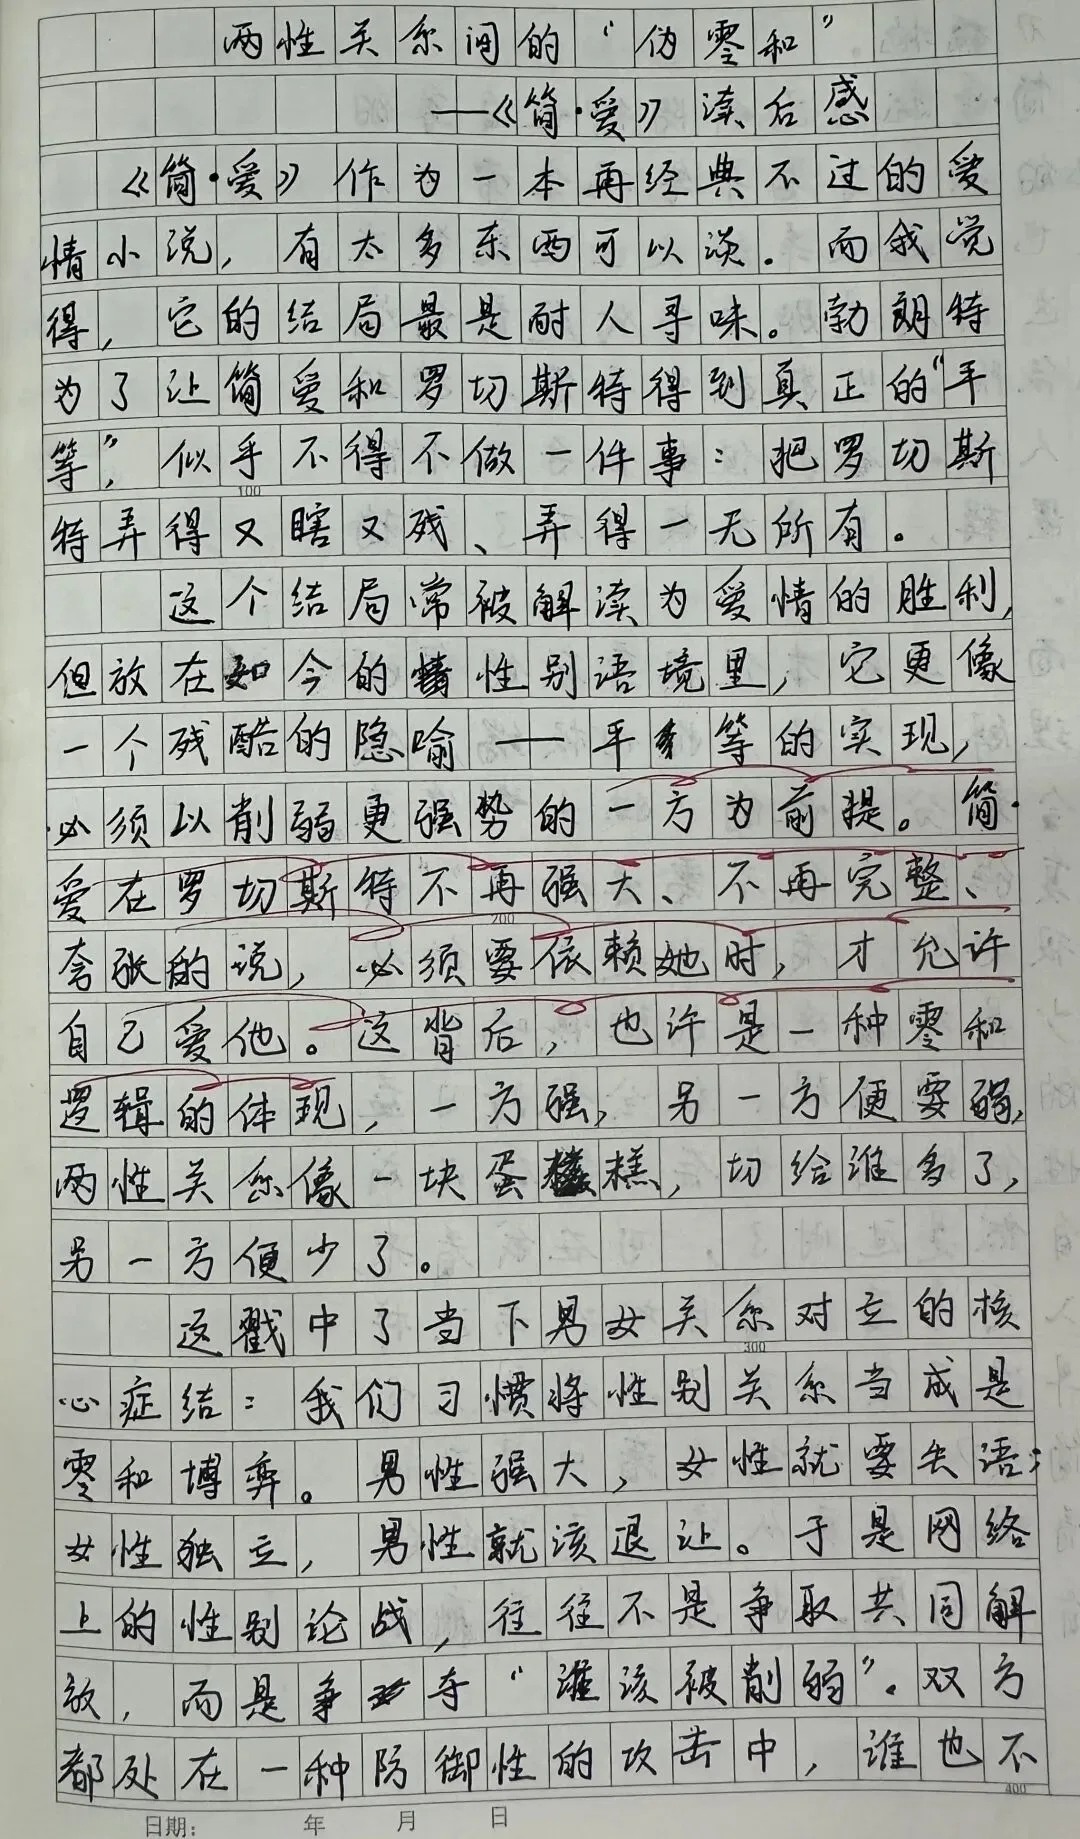 两性关系间的“伪零和”
——《简·爱》读后感
《简·爱》作为一本再经典不过的爱
情小说，有太多东西可以谈。而我觉
得，它的结局最是耐人寻味。勃朗特
为了让简爱和罗切斯特得到真正的“平
等”，似乎不得不做一件事：把罗切斯
100
特弄得又瞎又残、弄得一无所有。
这个结局常被解读为爱情的胜利，
但放在如今的性别语境里，它更像
一个残酷的隐喻——平等的实现，
必须以削弱更强势的一方为前提。简·
爱在罗切斯特不再强大、不再完整、
200
夸张的说，必须要依赖她时，才允许
自己爱他。这背后，也许是一种零和
逻辑的体现，一方强，另一方便要弱，
两性关系像一块蛋糕，切给谁多了，
另一方便少了。
这戳中了当下男女关系对立的核
300
心症结：我们习惯将性别关系当成是
零和博弈。男性强大，女性就要失语；
女性独立，男性就该退让。于是网络
上的性别论战，往往不是争取共同解
放，而是争夺“谁该被削弱”。双方
都处在一种防御性的攻击中，谁也不
400
日期： 年 月 日